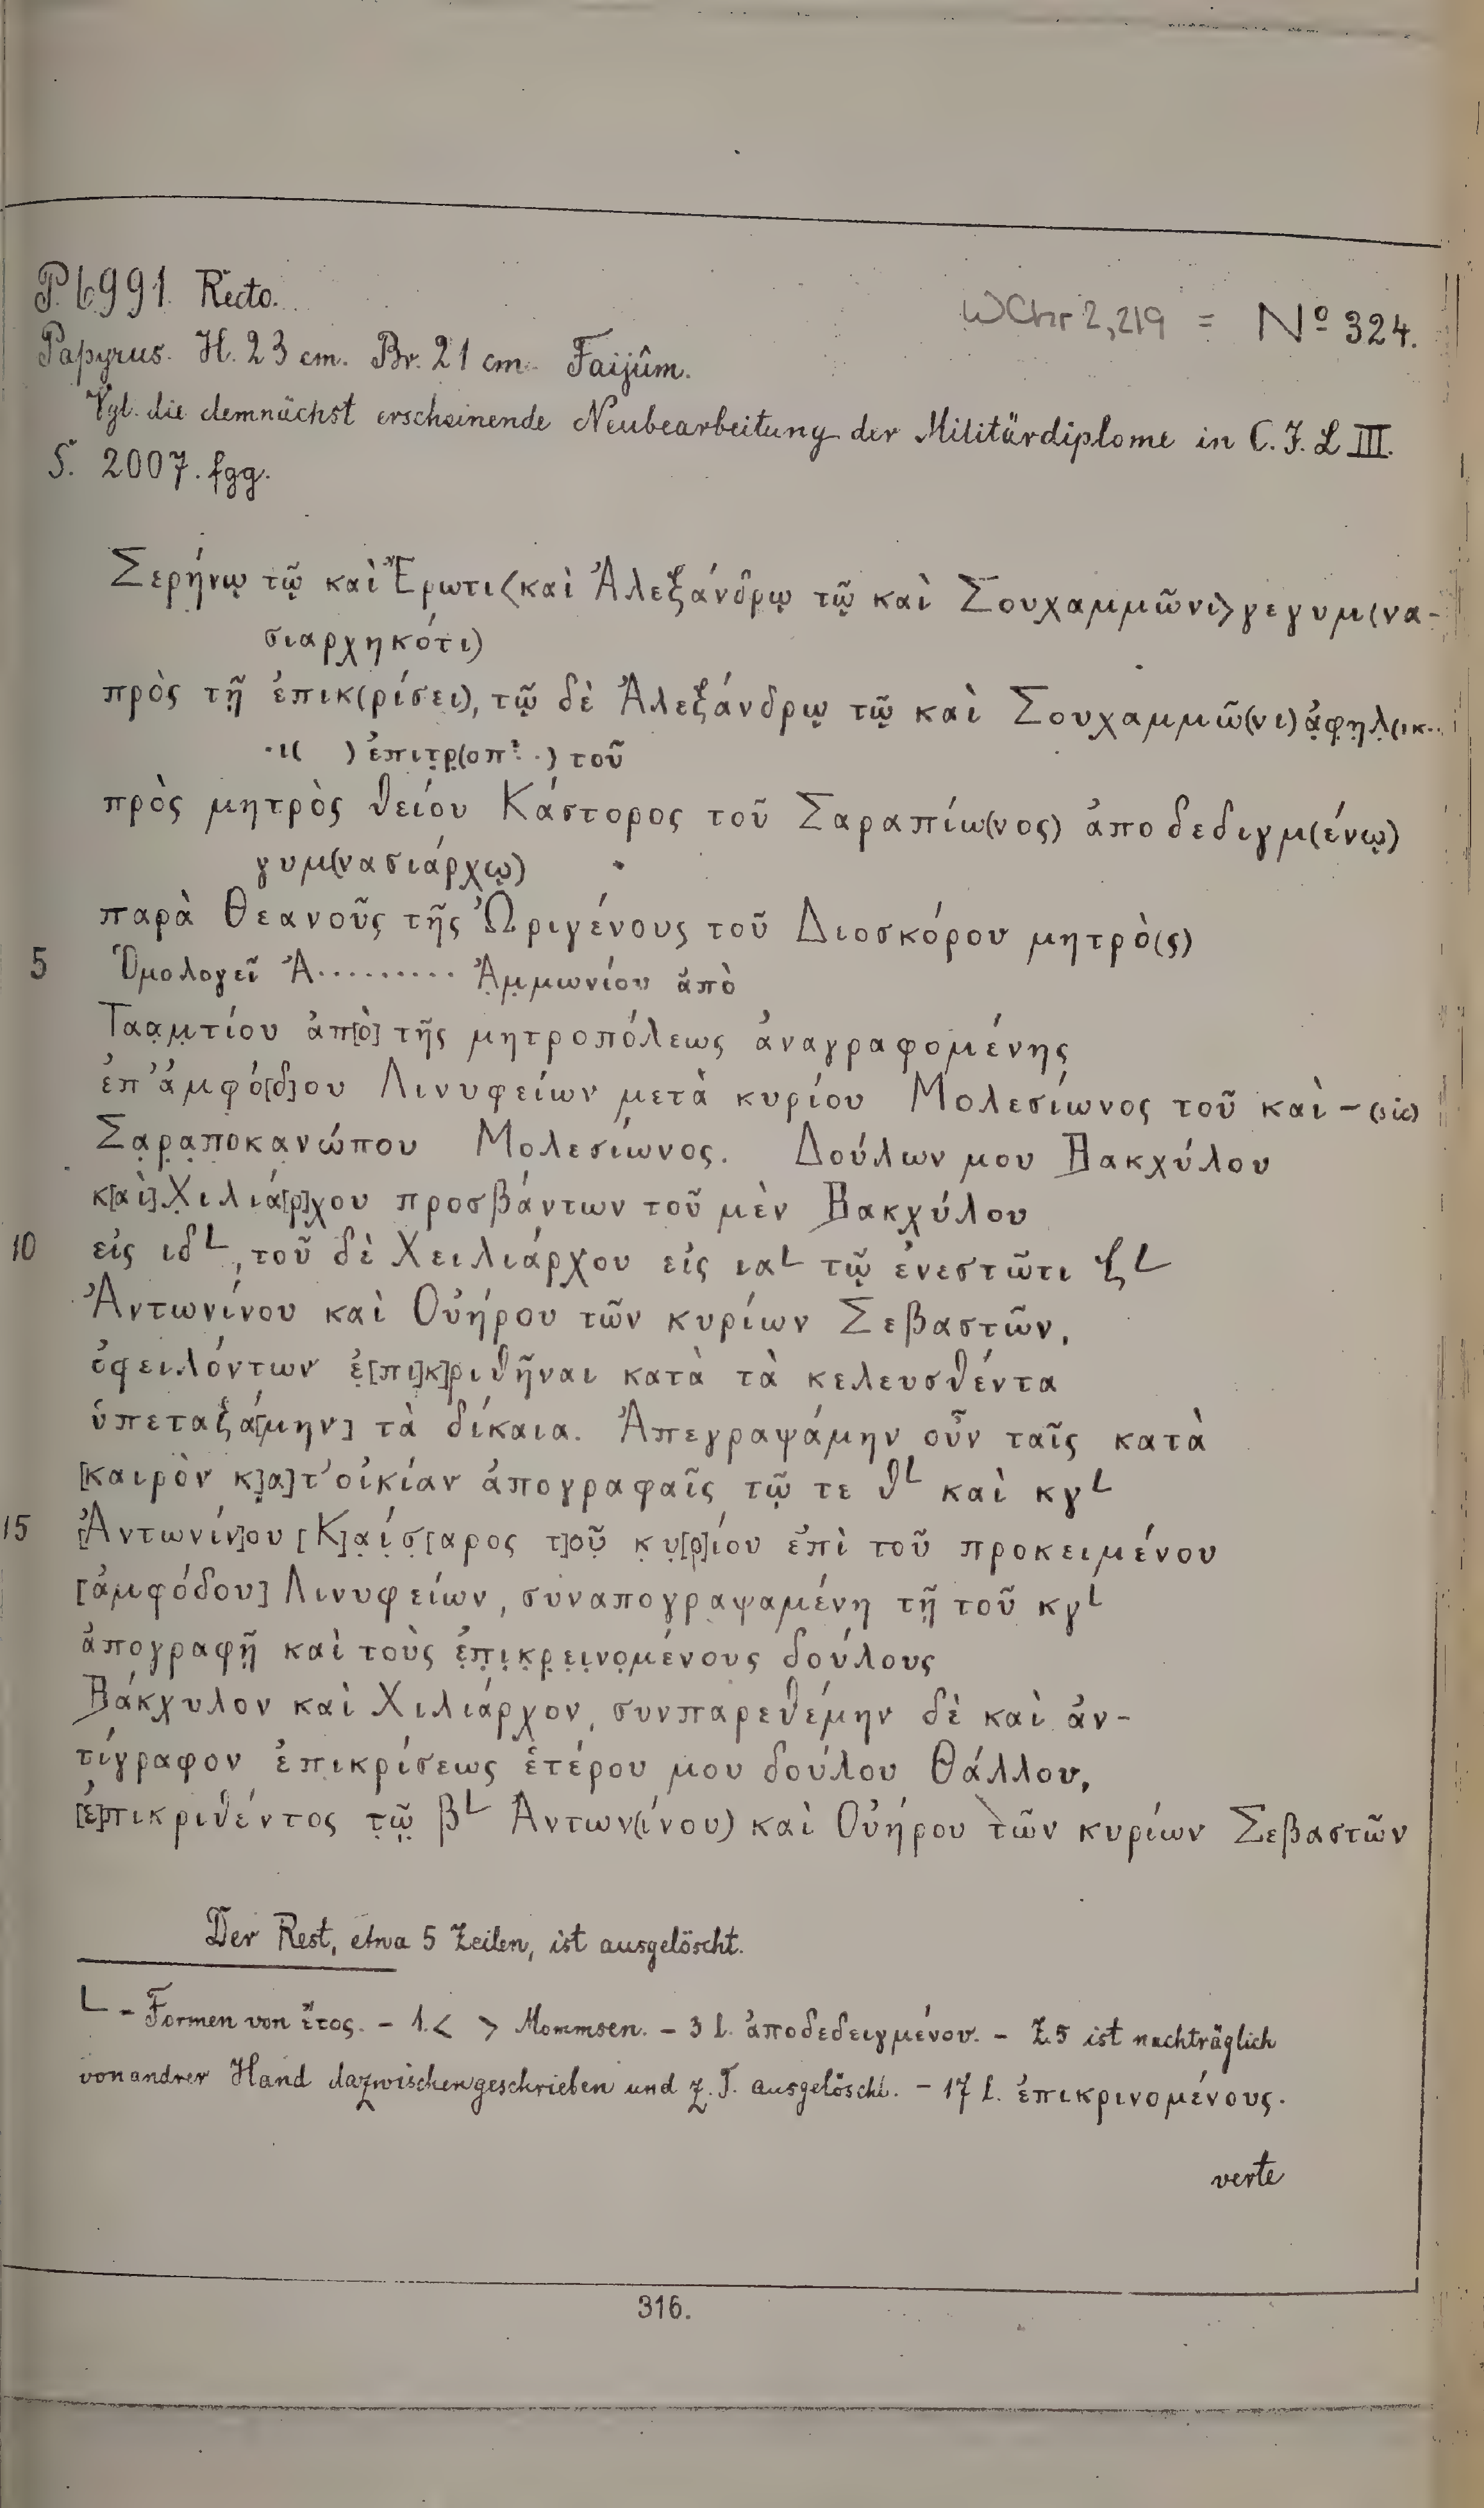 P. 6991. Recto.
WChr 2,219 = Nº 324.
Papyrus. H. 23 cm. Br. 21 cm. Faijûm.
Vgl. die demnächst erscheinende Neubearbeitung der Militärdiplome in C. I. L III.
S. 2007. fgg.
Σερήνῳ τῷ καὶ Ἔρωτι <καὶ Ἀλεξάνδρῳ τῷ καὶ Σουχαμμῶνι> γεγυμ(να-
σιαρχηκότι)
πρὸς τῇ ἐπικ(ρίσει), τῷ δὲ Ἀλεξάνδρῳ τῷ καὶ Σουχαμμῶ(νι) ἀ̣φ̣η̣λ̣(ικ..
.ι( ) ἐπιτ̣ρ̣(οπ?..) τοῦ
πρὸς μητρὸς θείου Κάστορος τοῦ Σαραπίω(νος) ἀποδεδιγμ(ένῳ)
γυμ(νασιάρχῳ)
παρὰ Θεανοῦς τῆς Ὠριγένους τοῦ Διοσκόρου μητρὸ(ς)
5 Ὁμολογεῖ Ἀ.......... Ἀ̣μ̣μωνίου ἀπὸ
Τααμ̣τίου ἀπ[ὸ] τῆς μητροπόλεως ἀναγραφομένης
ἐπ' ἀμφό[δ]ου Λινυφείων μετὰ κυρίου Μολεσίωνος τοῦ καὶ – (sic)
Σα̣ρ̣α̣π̣οκα̣νώπου Μολεσίωνος. Δούλων μου Βακχύλου
κ[αὶ] Χ̣ιλιά[ρ]χου προσβάντων τοῦ μὲν Βακχύλου
10 εἰς ιδ L, τοῦ δὲ Χειλιάρχου εἰς ια L τῷ ἐνεστῶτι ζ L
Ἀντωνίνου καὶ Οὐήρου τῶν κυρίων Σεβαστῶν,
ὀφειλόντων ἐ̣[πι]κ̣]ρ̣ιθῆναι κατὰ τὰ κελευσθέντα
ὑπεταξά[μην] τὰ δίκαια. Ἀπεγραψάμην οὖν ταῖς κατὰ
[καιρὸν κ]α̣]τ' οἰκίαν ἀπογραφαῖς τῷ τε θ L καὶ κγ L
15 [Ἀντωνίν]ου [Κ]α̣ί̣σ̣[αρος τ]ο̣ῦ̣ κ̣υ̣[ρ]ίου ἐπὶ τοῦ προκειμένου
[ἀμφόδου] Λινυφείων, συναπογραψαμένη τῇ τοῦ κγ L
ἀπογραφῇ καὶ τοὺς ἐ̣π̣ι̣κ̣ρ̣ε̣ι̣ν̣ο̣μένους δούλους
Βάκχυλον καὶ Χιλιάρχον, συνπαρεθέμην δὲ καὶ ἀν-
τίγραφον ἐπικρίσεως ἑτέρου μου δούλου Θάλλου,
[ἐ]πικριθέντος τ̣ῷ̣ β L Ἀντων(ίνου) καὶ Οὐήρου τῶν κυρίων Σεβαστῶν
Der Rest, etwa 5 Zeilen, ist ausgelöscht.
L – Formen von ἔτος. – 1. < > Mommsen. – 3 l. ἀποδεδειγμένου. – Z. 5 ist nachträglich
von andrer Hand dazwischengeschrieben und z. T. ausgelöscht. – 17 l. ἐπικρινομένους.
verte
316.